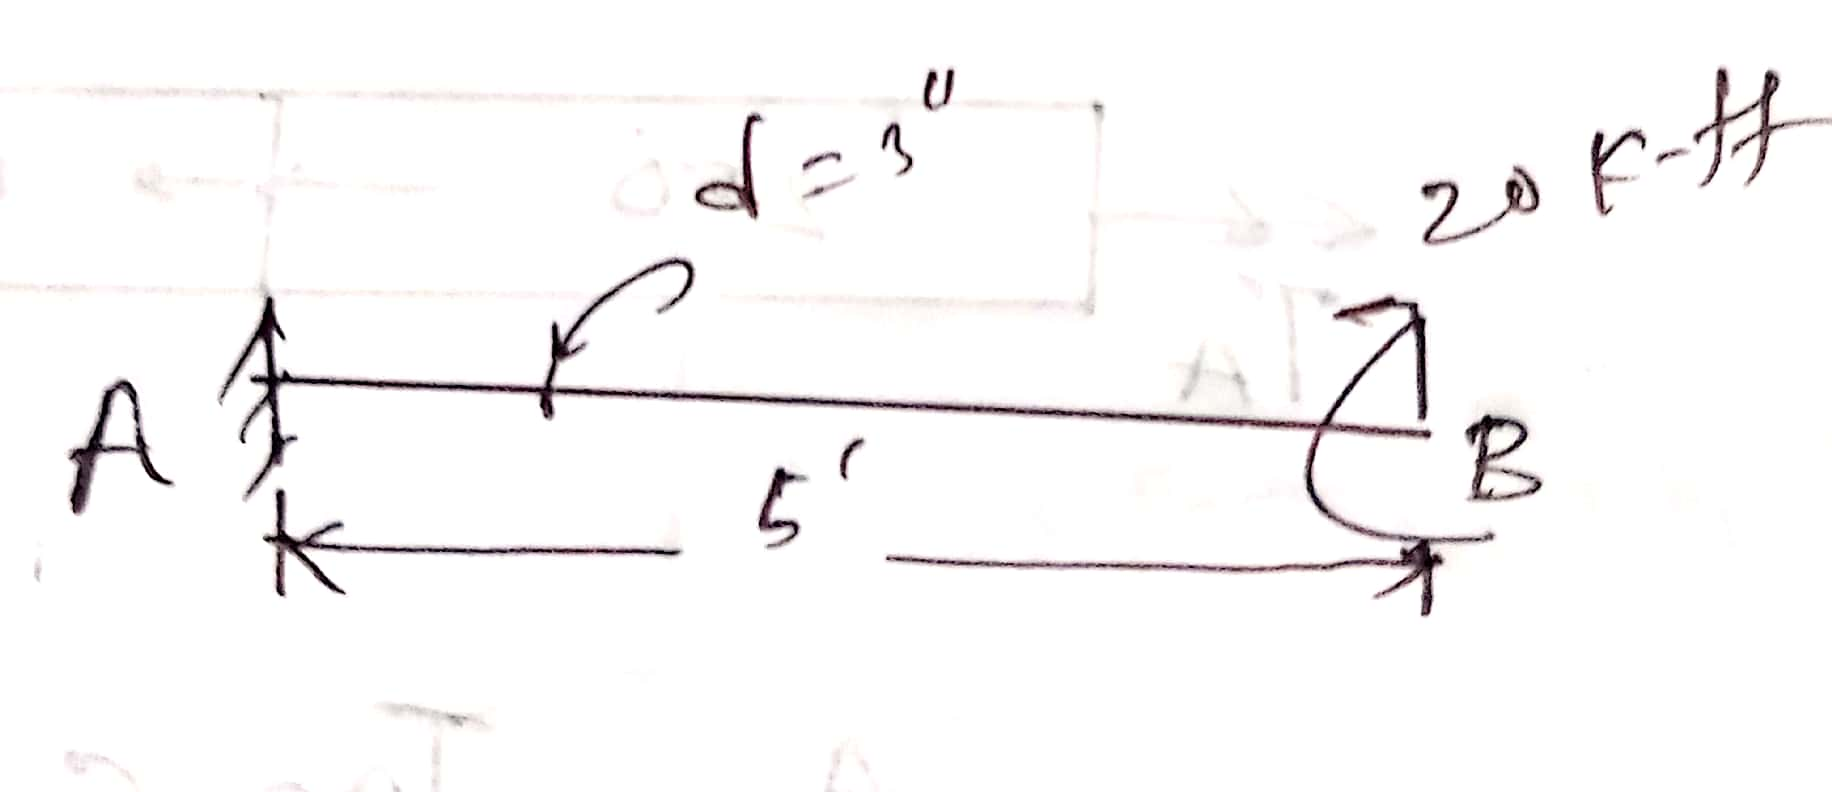 d = 3"
20 K-ft
A
B
5'